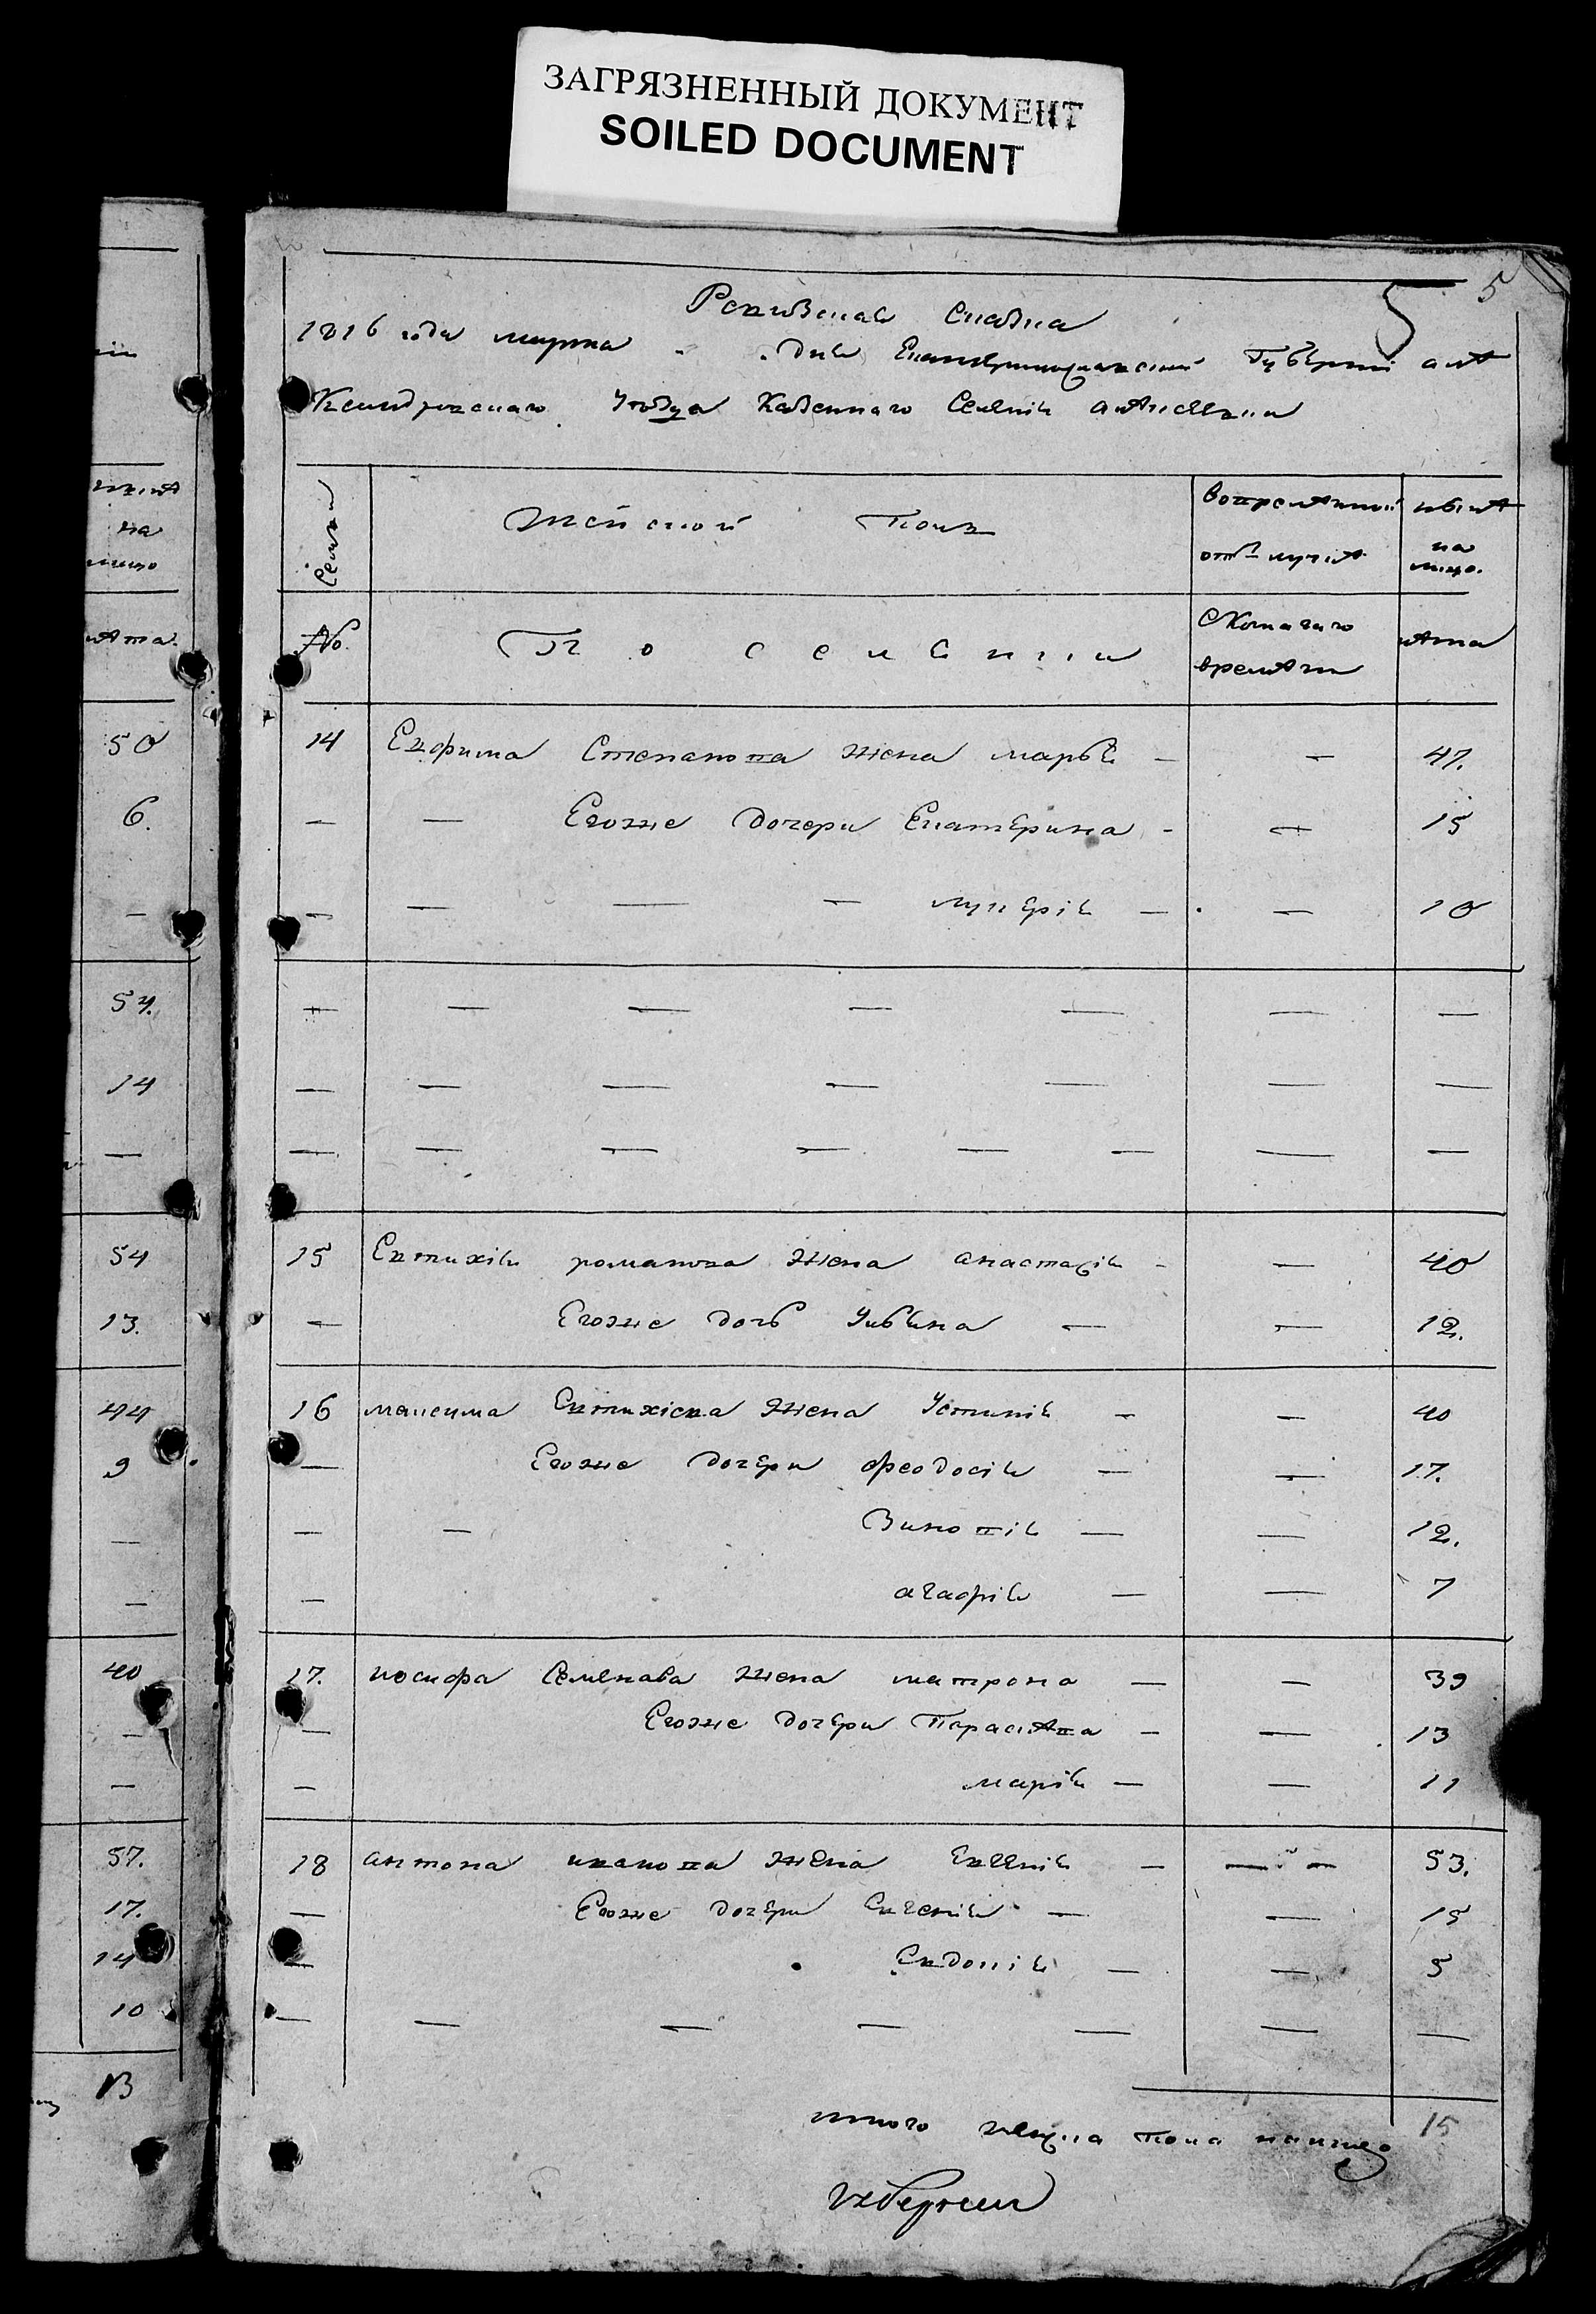 ЗАГРЯЗНЕННЫЙ ДОКУМЕНТ
SOILED DOCUMENT
5 5
Ревизская Сказка
1816 года марта дня Екатеринославской Губернии але
Ксандровского Уезда Казенного Селения
Семьи
женской пол
вовременной
отлучке
ныне
на
лицо.
№
С Которого
времяни
лета
14 Евфима Степанова жена марья — — 47.
— — Егоже дочери Екатерина — — 15
— — — — лукерiя — — 10
— — — — — — —
— — — — — — —
— — — — — — — —
15 Евтихiя романова жена анастасiя — — 40
— Егоже дочь Ульяна — — 12.
16 максима Евтихiева жена Устинiя — — 40
— Егоже дочери феодосiя — — 17.
— — Зиновiя — — 12.
— агафiя — — 7
17. иосифа Семенова жена матрона — — 39
— Егоже дочери Параскева — — 13
— марiя — — 11
18 антона иванова жена — — 53.
— Егоже дочери Евгенiя — — 15
— Евдокiя — — 5
— — — — — — —
итого женска пола налицо 15
50
6.
—
54.
14
—
54
13.
44
9
—
—
40
—
—
57.
17.
14
10
13